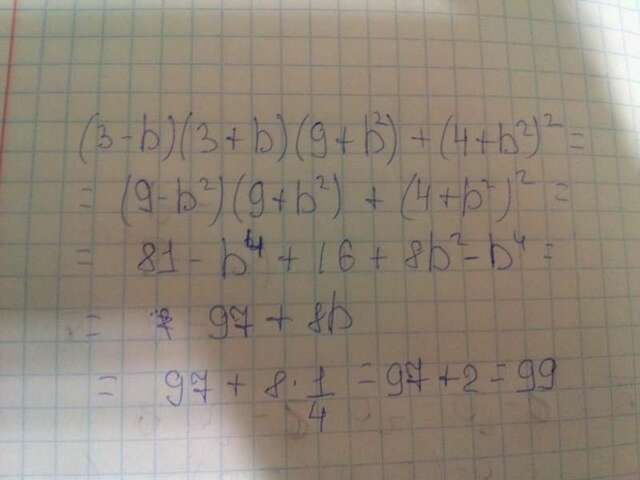 (3-b)(3+b)(9+b²)+(4+b²)²=
= (9-b²)(9+b²) + (4+b²)² =
= 81 - b⁴ + 16 + 8b² - b⁴ =
= 97 + 8b
= 97 + 8·1/4 = 97+2=99